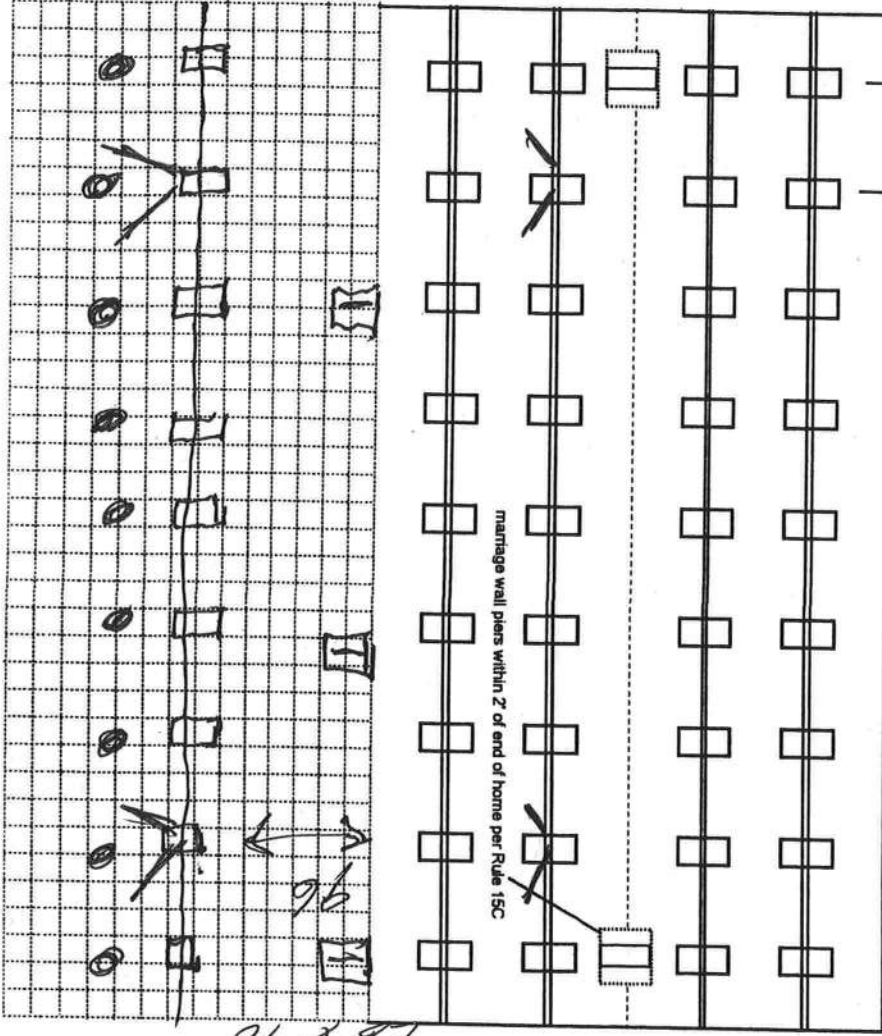 marriage wall piers within 2' of end of home per Rule 15C
96